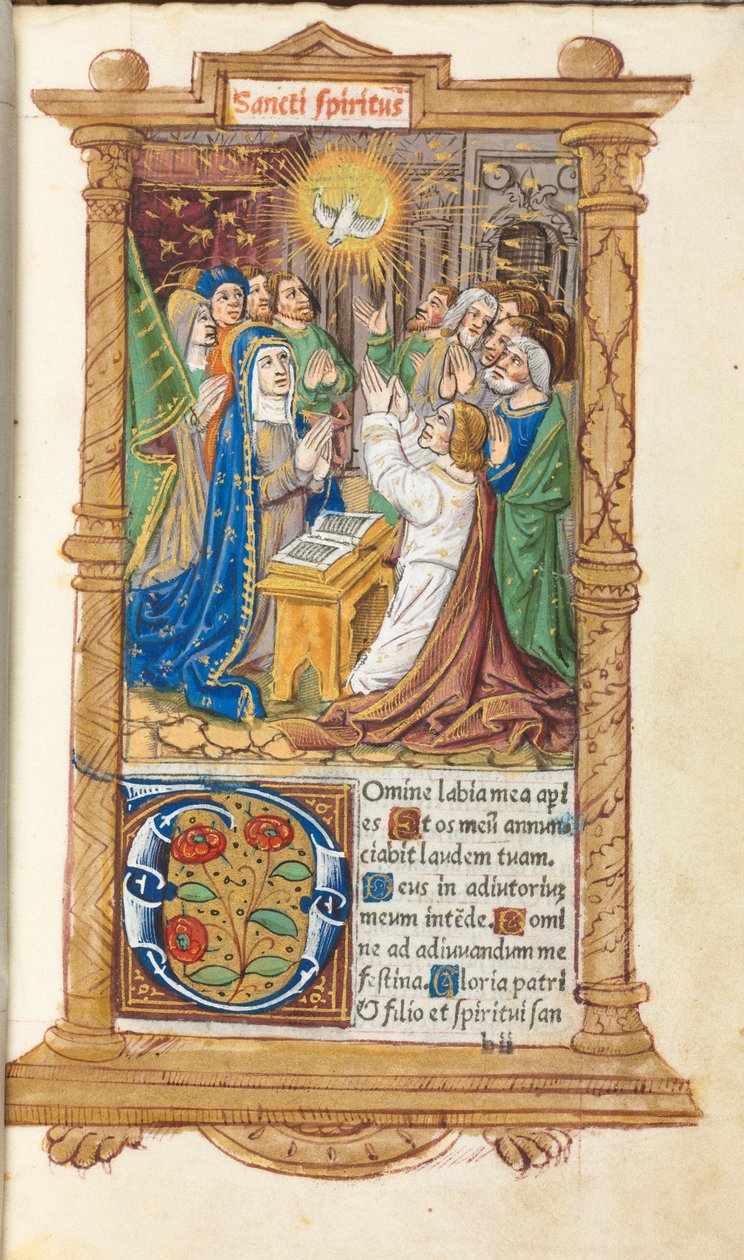 Sancti spiritus̄
Domine labia mea aṗi
es Et os meū annun-
ciabit laudem tuam.
Deus in adiutoriuꝫ
meum intēde. Domi
ne ad adiuuandum me
festina. Gloria patri
& filio et spiritui san
b ii